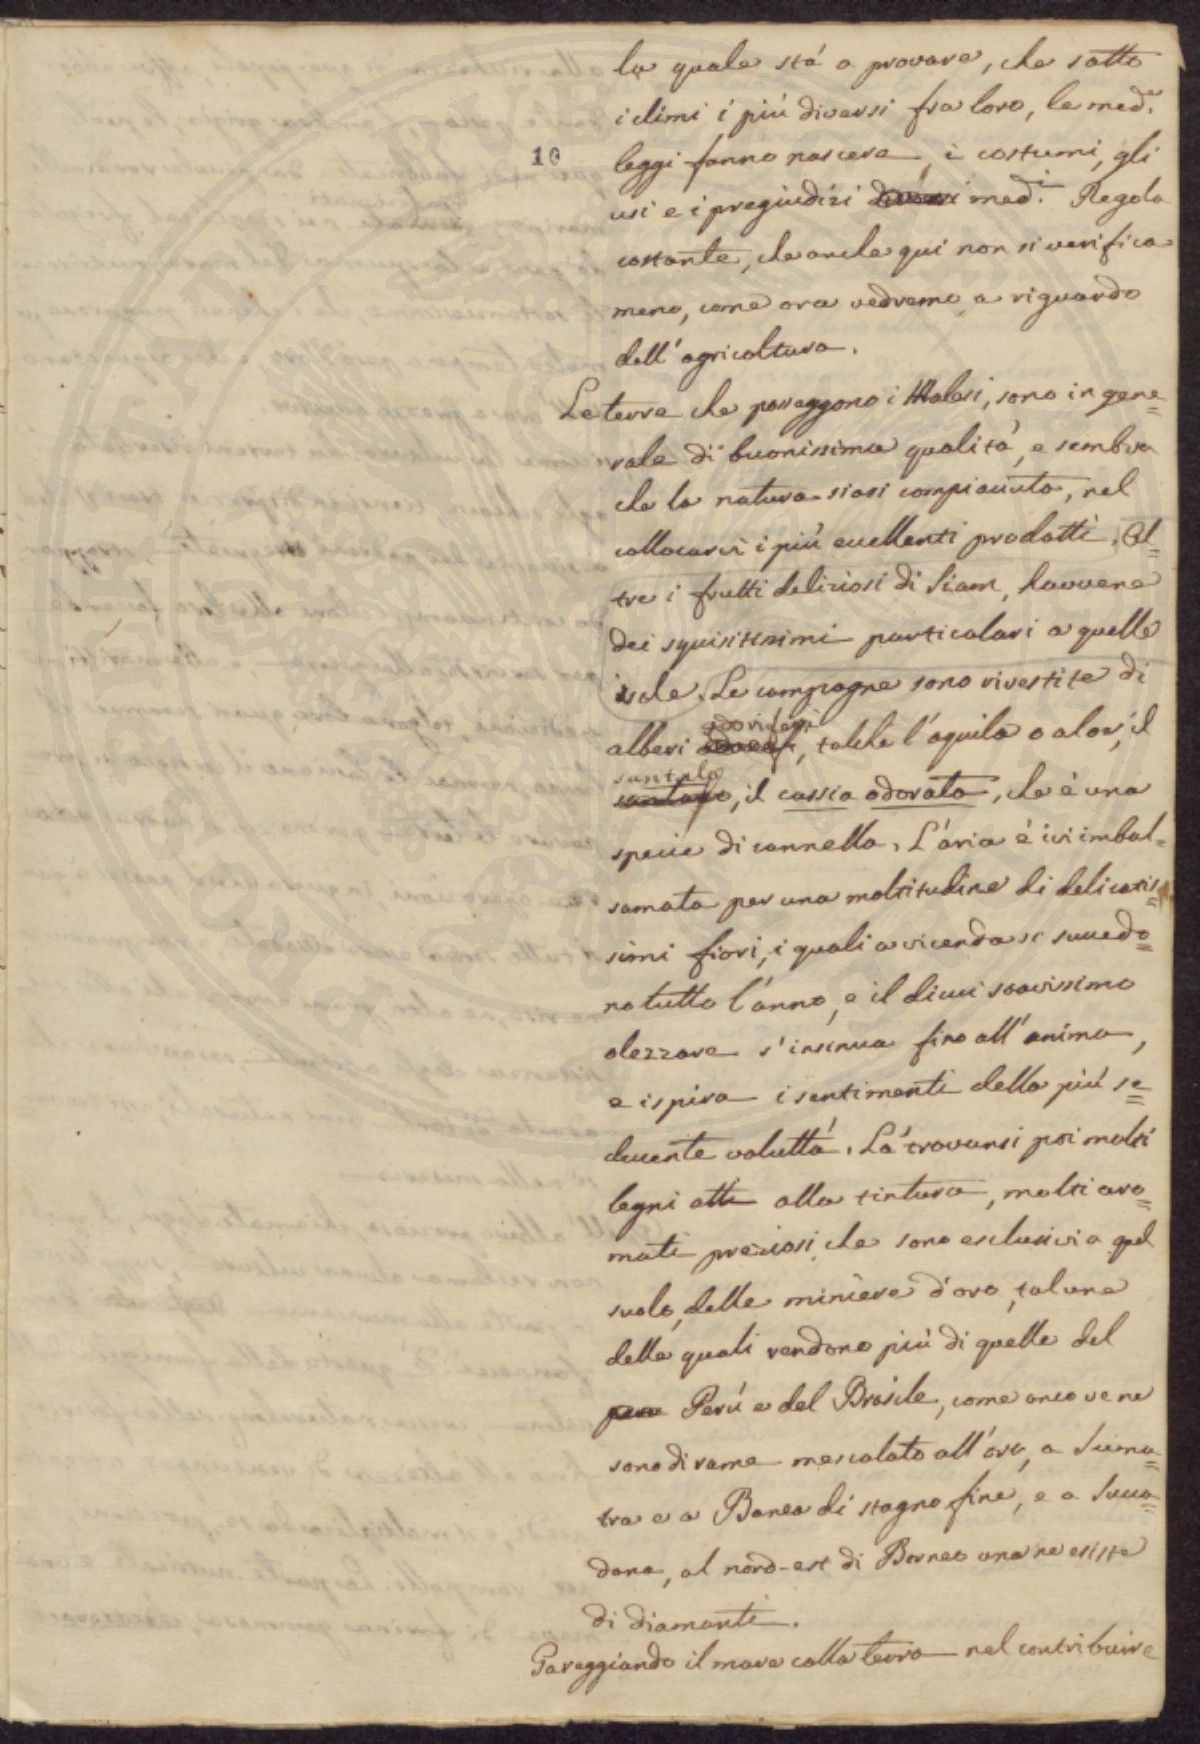 la quale stà a provare, che sotto
i climi i più diversi fra loro, le med.e
10
leggi fanno nascere i costumi, gli
usi e i pregiudizi med.i Regola
costante, che anche qui non si verifica
meno, come ora vedremo a riguardo
dell'agricoltura.
Le terre che posseggono i Malesi, sono in gene=
rale di buonissima qualità, e sembra
che la natura siasi compiaciuta, nel
collocarvi i più eccellenti prodotti. Ol=
tre i frutti deliziosi di Siam, havvene
dei squisitissimi particolari a quelle
isole. Le campagne sono rivestite di
odoriferi
alberi, talché l'aquila o aloe, il
santalo
il cassia odorata, che è una
specie di cannella. L'aria è ivi imbal=
samata per una moltitudine di delicatis=
simi fiori, i quali a vicenda si succedo=
no tutto l'anno, e il di cui soavissimo
olezzare s'insinua fino all'anima,
e ispira i sentimenti della più se=
ducente voluttà. Là trovansi poi molti
legni atti alla tintura, molti aro=
mati preziosi che sono esclusivi a quel
suolo, delle miniere d'oro, talune
delle quali rendono più di quelle del
Perù e del Brasile, come anco ve ne
sono di rame mescolato all'oro, a Suma=
tra e a Banca di stagno fine, e a Succa=
dana, al nord-est di Borneo una ne esiste
di diamanti.
Pareggiando il mare colla terra nel contribuire